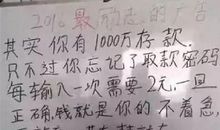 2016最励志的广告
其实你有1000万存款.
只不过你忘记了取款密码
每输入一次需要2元,一旦
正确,钱就是你的不着急,